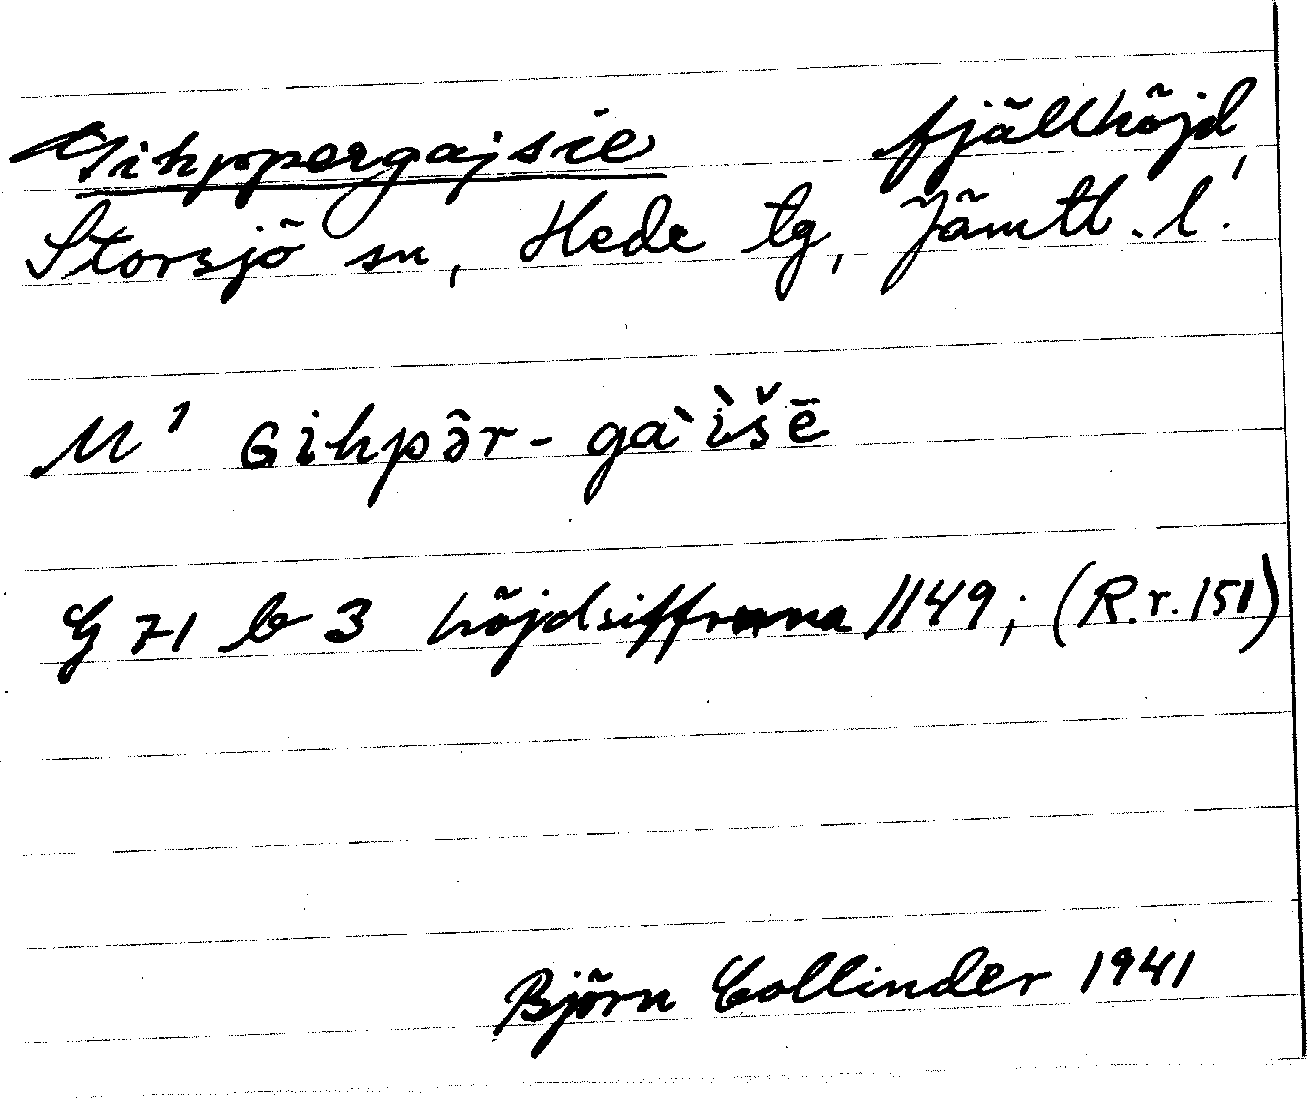 Gihppergajsie fjällhöjd,
Storsjö sn, Hede tg, Jämtl. l.
M¹ Gihpə̑r-ga`ìšē
G 71 b 3 höjdsiffrorna 1149; (R.r. 151)
Björn Collinder 1941